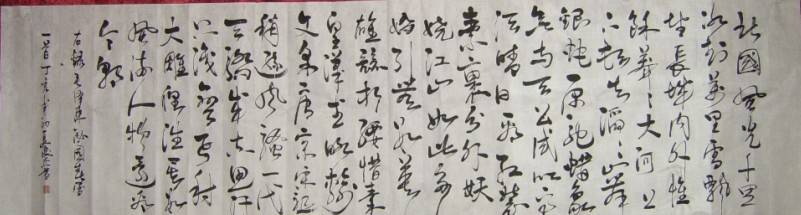 北國風光千里
冰封萬里雪飄
望長城內外惟
餘莽々大河上
下頓失滔々山舞
銀蛇原馳蠟象
欲与天公試比高
須晴日看紅裝
素裹分外妖
嬈江山如此多
嬌引無數英
雄競折腰惜秦
皇漢武略輸
文采唐宗宋祖
稍遜風騷一代
天驕成吉思汗
只識彎弓射
大雕俱往矣數
風流人物還看
今朝
右錄毛澤東沁園春雪
丁亥年